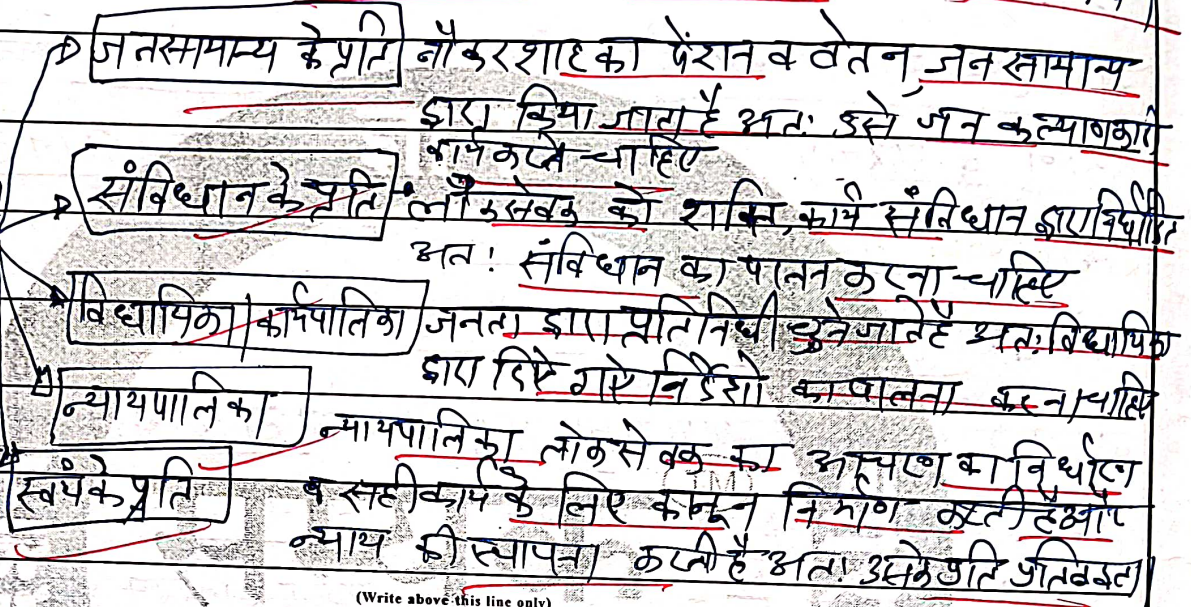 जनसामान्य के प्रति नौकरशाह का पेंशन व वेतन जन सामान्य
द्वारा किया जाता है अतः उसे जन कल्याणकारी
कार्य करने चाहिए
संविधान के प्रति लोकसेवक की शक्ति, कार्य संविधान द्वारा निर्धारित
अतः संविधान का पालन करना चाहिए
विधायिका / कार्यपालिका जनता द्वारा प्रतिनिधी चुने जाते है अतः विधायिका
द्वारा दिऐ गऐ निर्देशो का पालना करना चाहिए
न्यायपालिका न्यायपालिका लोकसेवक का आचरण का निर्धारण
स्वयं के प्रति व सही कार्य के लिए कानून निर्माण करती है और
न्याय की स्थापना करती है अतः उसके प्रति प्रतिबद्धता
(Write above this line only)